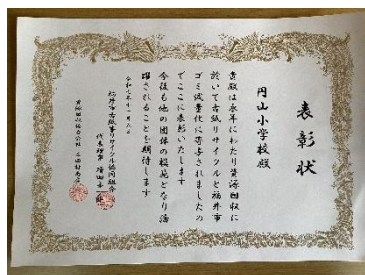 表彰状
円山小学校殿
貴殿は永年にわたり資源回収に
於いて古紙リサイクルと福井市
ゴミ減量化に寄与されましたの
でここに表彰いたします
今後も他の団体の模範となり活
躍されることを期待します
福井市古紙等リサイクル協同組合
代表理事 増田